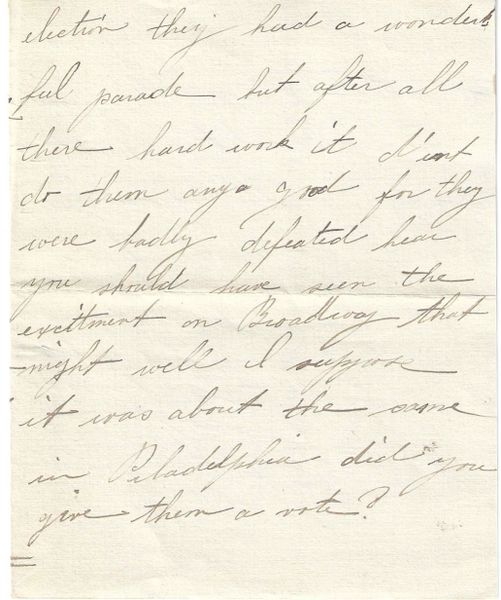 election they had a wonder
ful parade but after all
there hard work it d'ent
do them any good for they
were badly defeated hear
you should have seen the
excitment on Broadway that
night well I suppose
it was about the same
in Piladelphia did you
give them a vote?